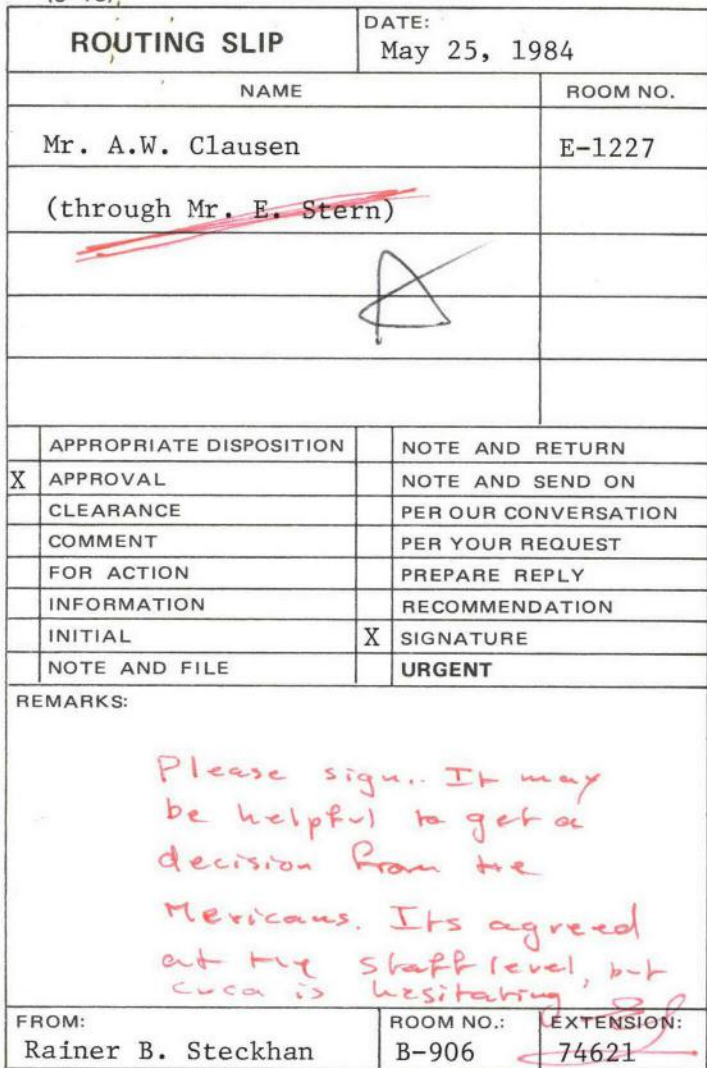 ROUTING SLIP
DATE:
May 25, 1984
NAME
ROOM NO.
Mr. A.W. Clausen
E-1227
(through Mr. E. Stern)
APPROPRIATE DISPOSITION
NOTE AND RETURN
X APPROVAL
NOTE AND SEND ON
CLEARANCE
PER OUR CONVERSATION
COMMENT
PER YOUR REQUEST
FOR ACTION
PREPARE REPLY
INFORMATION
RECOMMENDATION
INITIAL
X SIGNATURE
NOTE AND FILE
URGENT
REMARKS:
Please sign. It may
be helpful to get a
decision from the
Mexicans. Its agreed
at the staff level, but
is hesitating
FROM:
Rainer B. Steckhan
ROOM NO.:
B-906
EXTENSION:
74621